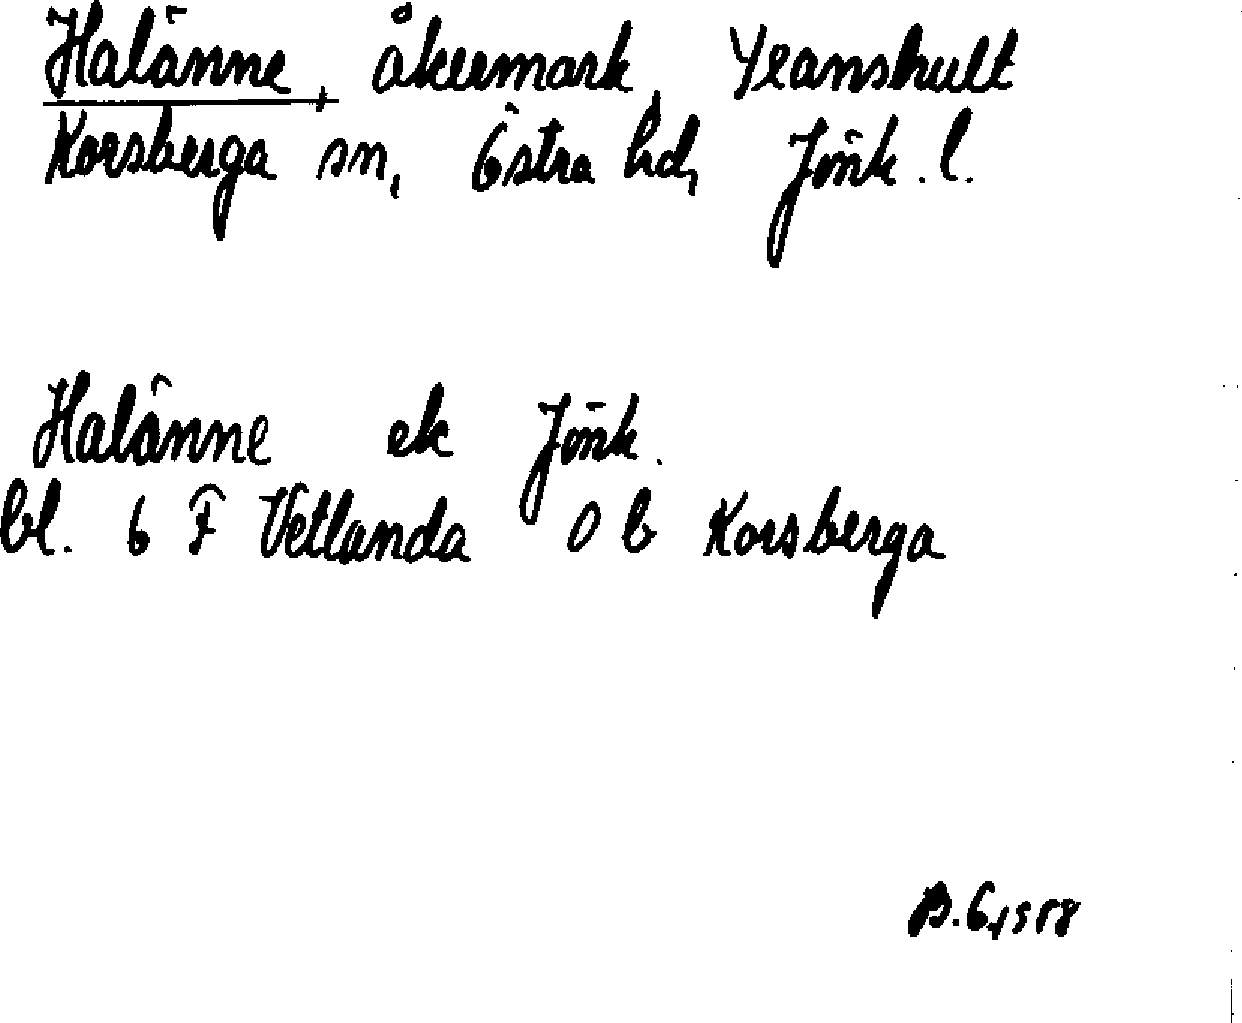 Halänne, åkermark, Yxanshult
Korsberga sn, Östra hd, Jönk. l.
Halänne ek Jönk.
bl. 6 F Vetlanda 0 b Korsberga